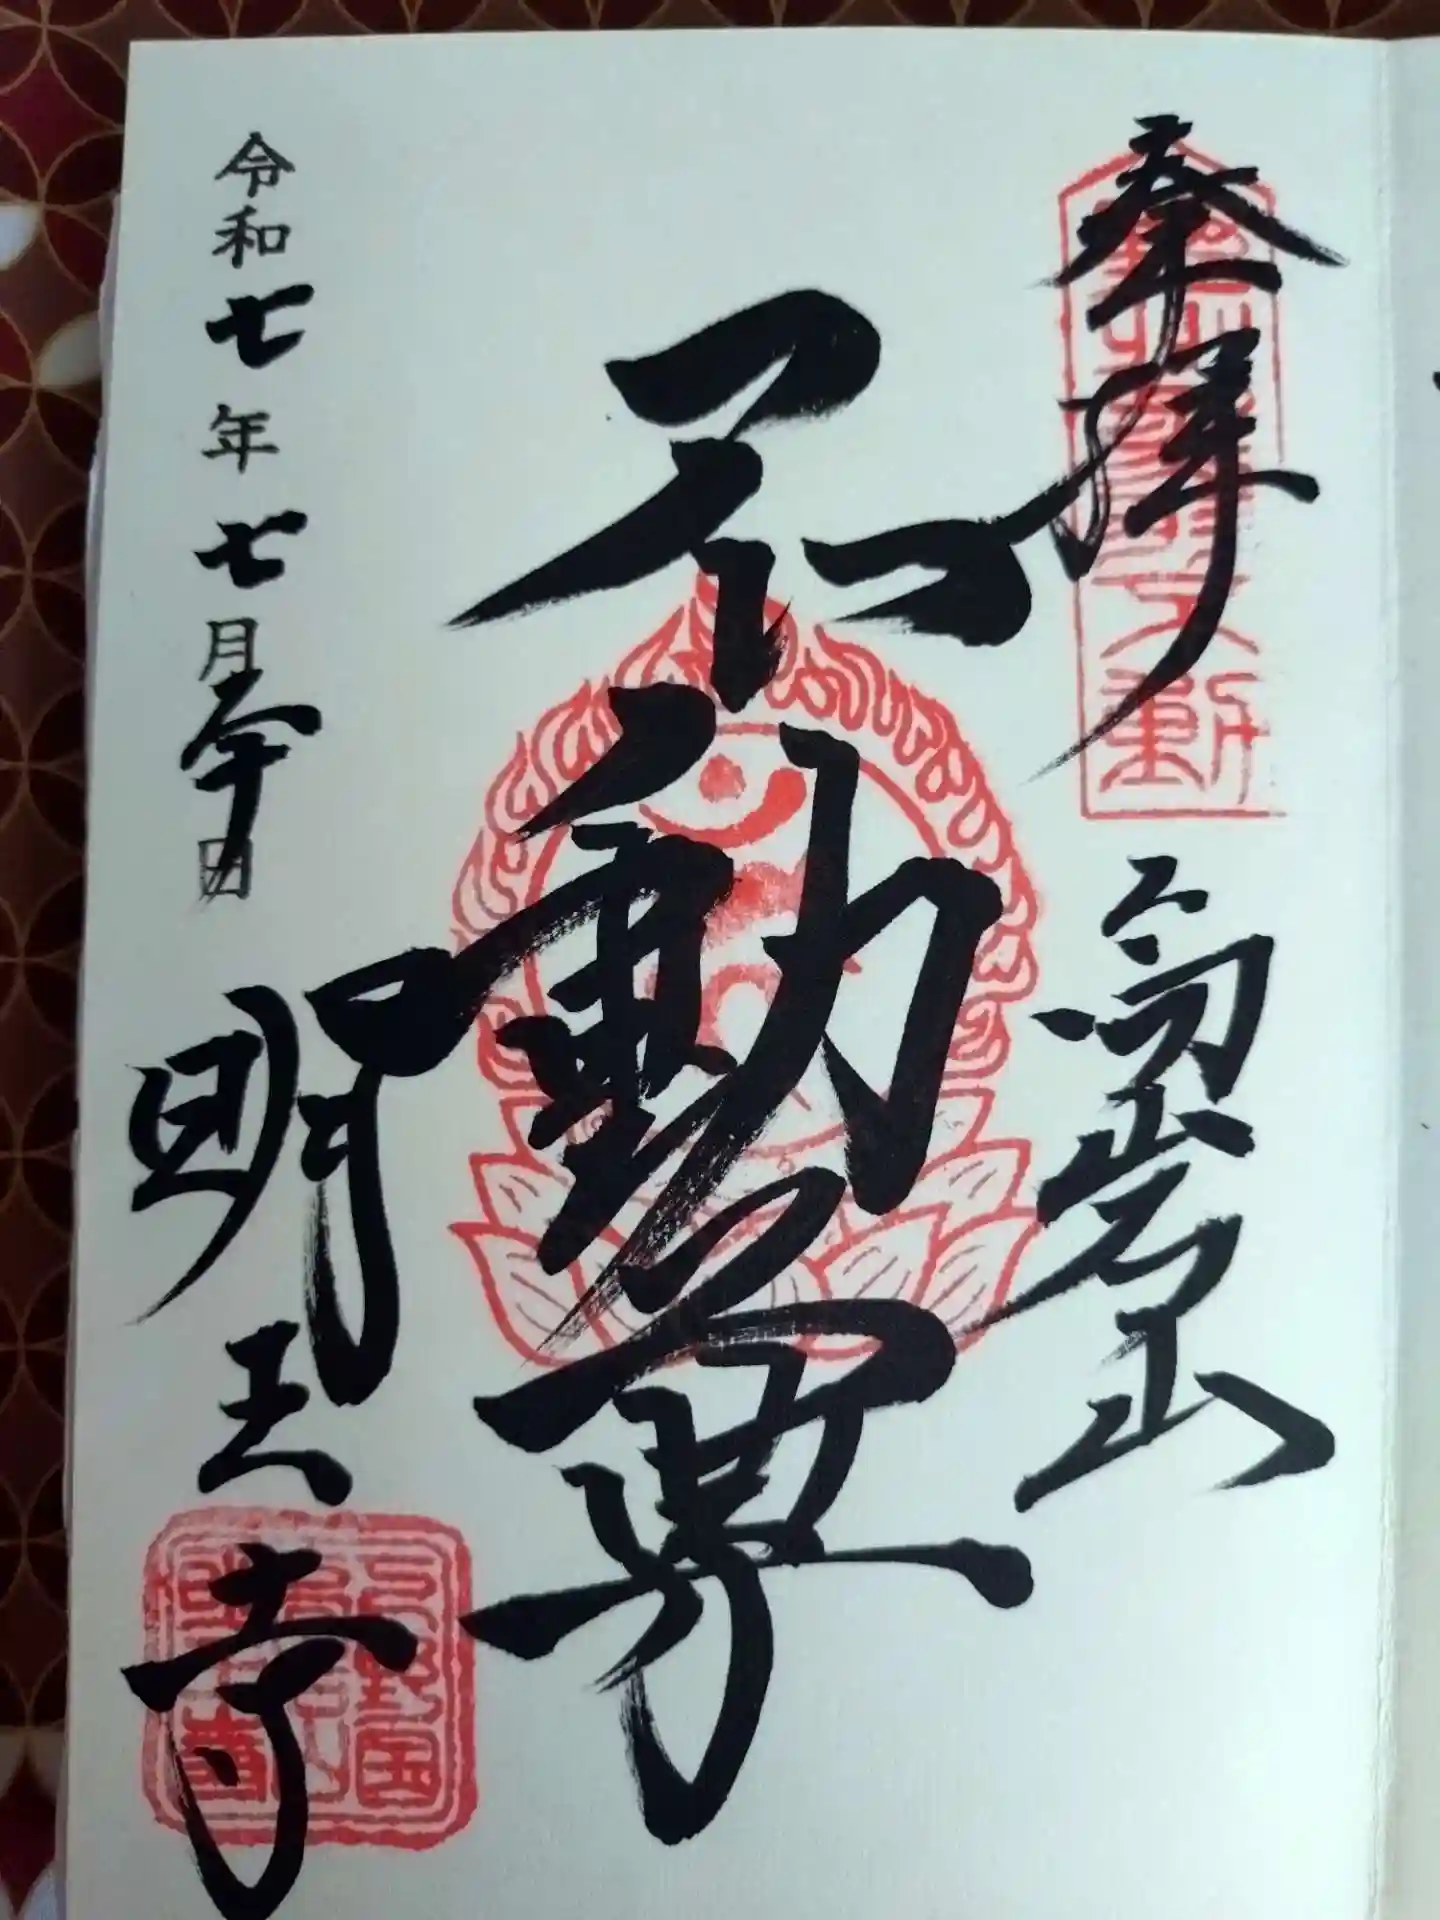 奉拝
高岩山
不動尊
令和七年七月 日
明王寺